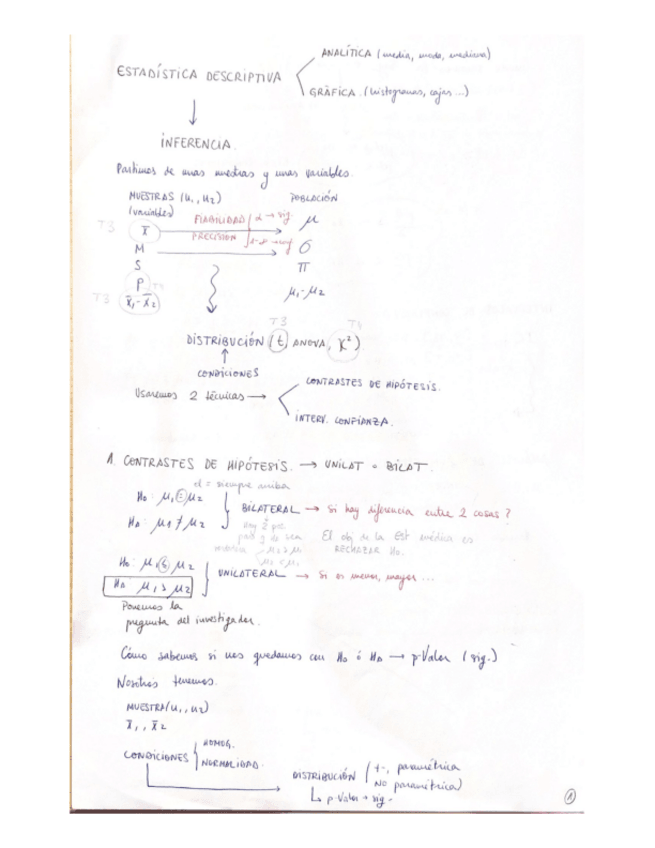 ANALÍTICA (media, moda, mediana)
ESTADÍSTICA DESCRIPTIVA
GRÁFICA. (histogramas, cajas ...)
INFERENCIA.
Partimos de unas muestras y unas variables.
MUESTRAS (n₁, n₂) POBLACIÓN
(variables)
T3 x̄ FIABILIDAD α → sig. μ
PRECISIÓN
M σ
S π
P T4
T3 x̄₁-x̄₂ μ₁-μ₂
T3 T4
DISTRIBUCIÓN (t, ANOVA, χ²)
CONDICIONES
Usaremos 2 técnicas → CONTRASTES DE HIPÓTESIS.
INTERV. CONFIANZA.
1. CONTRASTES DE HIPÓTESIS. → UNILAT o BILAT.
el = siempre arriba
H₀: μ₁ = μ₂
BILATERAL → Si hay diferencia entre 2 cosas?
HA: μ₁ ≠ μ₂
El obj de la Est médica es
RECHAZAR H₀.
H₀: μ₁ ≤ μ₂
UNILATERAL → Si es menor, mayor ...
HA: μ₁ > μ₂
Ponemos la
pregunta del investigador.
Cómo sabemos si nos quedamos con H₀ ó HA → p-Valor (sig.)
Nosotros tenemos.
MUESTRA (n₁, n₂)
x̄₁, x̄₂
CONDICIONES HOMOG.
NORMALIDAD.
DISTRIBUCIÓN (t-, paramétrica
No paramétrica)
p-Valor → sig.
1